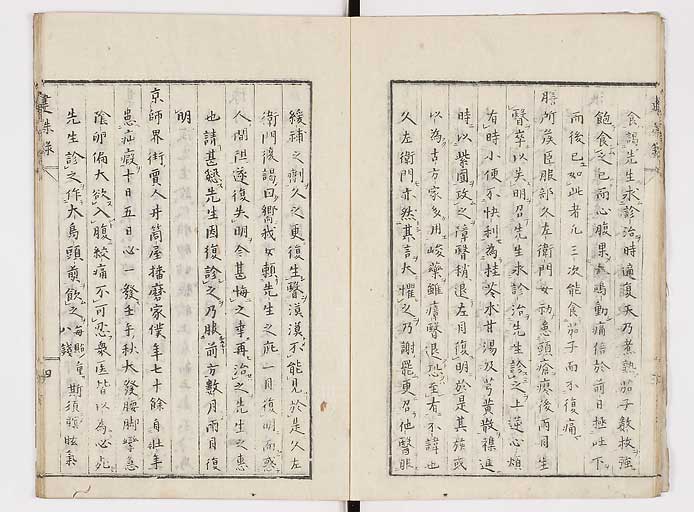 食謁先生求診治時適夏天乃煮熟茄子數枚強
飽食之已而心腹果鳴動痛倍於前日極吐下
而後已如此者凡三次能食茄子而不復痛
膳所候臣服部久左衛門女初患頭瘡瘥後兩目生
醫卒以失明召先生求診治先生診之上逆心煩
有時小便不快利為桂苓朮甘湯及芎黃散襍進
時以紫圓攻之障醫稍退左目復明於是其族或
以為古方家多用峻藥雖障醫退恐至有不諱也
久左衛門亦然其言大懼之乃謝罷更召他醫服
緩補之劑久之更復生醫漠漠不能見於是久左
衛門復謁曰嚮我女賴先生之庇一目復明而惑
人間阻遂復失明今甚悔之幸再治之先生之惠
也請甚懇先生因復診之乃服前方數月兩目復
明
京師界街賈人井筒屋播磨家僕年七十餘自壯年
患疝瘕十日五日必一發壬午秋大發腰脚攣急
陰卵偏大欲入腹絞痛不可忍眾医皆以為必死
先生診之作大烏頭煎飲之每貼重八錢斯須瞑眩氣
建殊錄
四